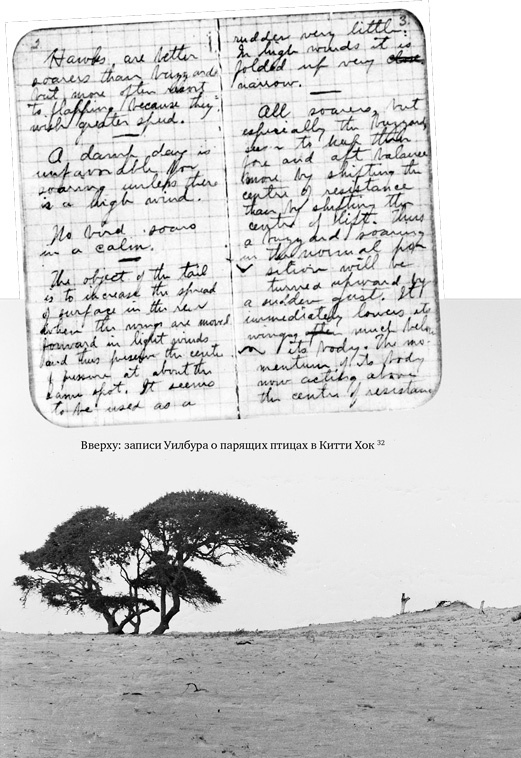 2
Hawks are better
soarers than buzzards
but more often resort
to flapping because they
wish greater speed.
A damp day is
unfavorable for
soaring unless there
is a high wind.
No bird soars
in a calm.
The object of the tail
is to increase the spread
of surface in the rear
when the wings are moved
forward in light winds
and thus preserve the centre
of pressure at about the
same spot. It seems
to be used as a
3.
rudder very little.
In high winds it is
folded up very close
narrow.
All soarers, but
especially the buzzard,
seem to keep their
fore and aft balance
more by shifting the
centre of resistance
than by shifting the
centre of lift. Thus
a buzzard soaring
in the normal po-
sition will be
turned upward by
a sudden gust. It
immediately lowers its
wings much below
its body. The mo-
mentum of its body
now acting above
the centre of resistance
Вверху: записи Уилбура о парящих птицах в Китти Хок 32